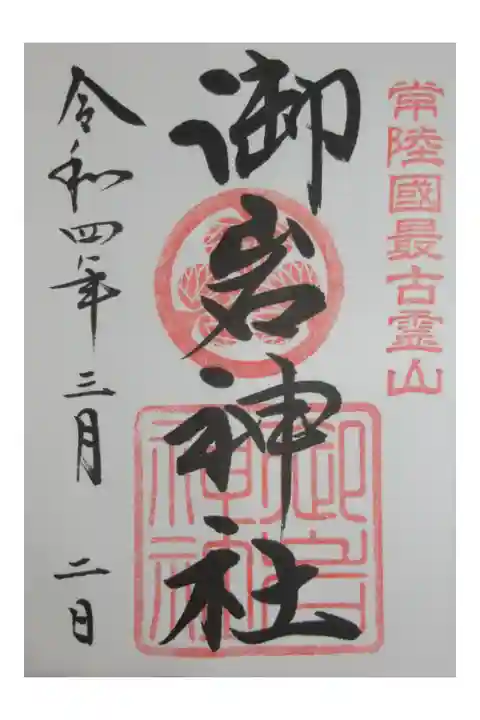 常陸國最古霊山
御岩神社
令和四年三月二日
御岩
神社